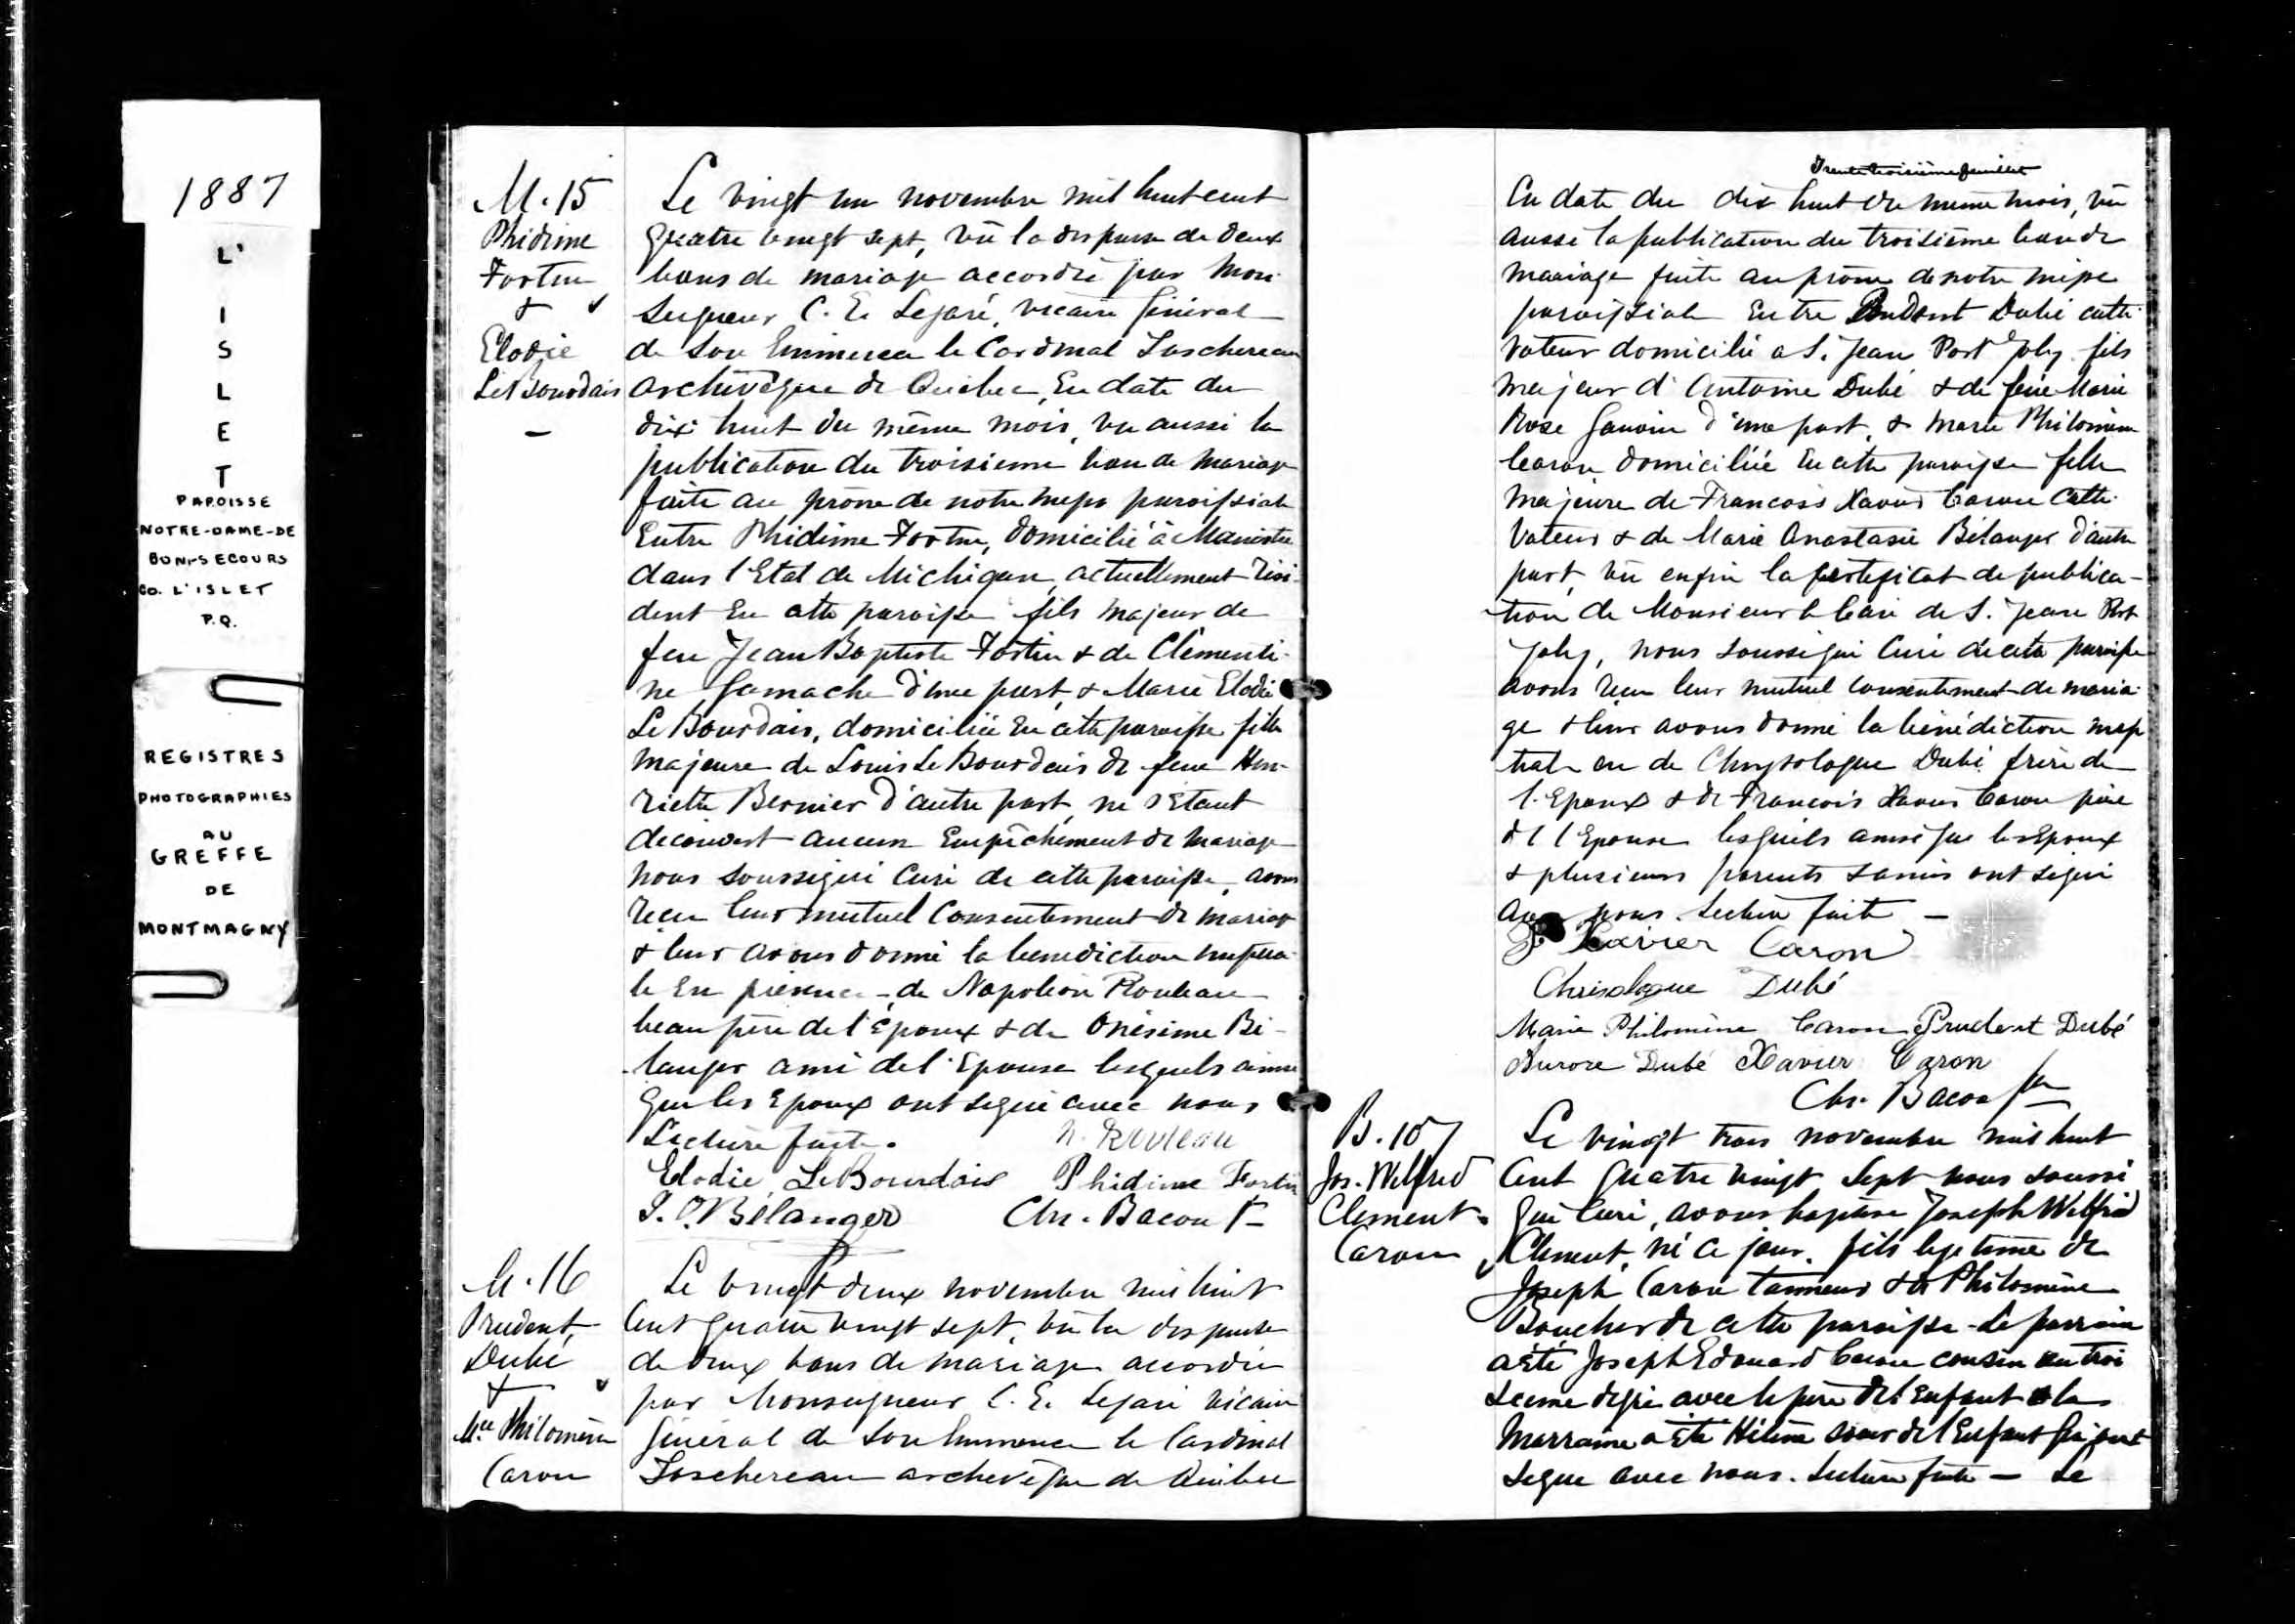 1887
L'
I
S
L
E
T
PAROISSE
NOTRE-DAME-DE
BON-SECOURS
CO. L'ISLET
P.Q.
REGISTRES
PHOTOGRAPHIES
AU
GREFFE
DE
MONTMAGNY
M. 15
Phidime
Fortin
&
Elodie
LeBourdais
Le vingt un novembre mil huit cent
quatre vingt sept, vû la dispense de deux
bans de mariage accordée par Mon-
seigneur C. E. Legaré, vicaire Général
de Son Eminence le Cardinal Taschereau
archevêque de Québec, En date du
dix huit du même mois, vu aussi la
publication du troisième ban de mariage
faite au prône de notre messe paroissiale
Entre Phidime Fortin, domicilié à Manistee
dans l'Etat de Michigan, actuellement rési-
dent En cette paroisse fils majeur de
feu Jean Baptiste Fortin & de Clémenti-
ne Gamache d'une part, & Marie Elodie
LeBourdais, domiciliée En cette paroisse fille
majeure de Louis LeBourdais & de feue Hen-
riette Bernier d'autre part, ne s'étant
découvert aucun Empêchement de mariage
nous soussigné Curé de cette paroisse, avons
reçu leur mutuel consentement de mariage
& leur avons donné la bénédiction nuptia-
le En présence de Napoléon Rouleau
beau père de l'Epoux & de Onésime Bé-
langer ami de l'Epouse lesquels ainsi
que les Epoux ont signé avec nous
Lecture faite. N. Rouleau
Elodie LeBourdais Phidime Fortin
J. O. Bélanger Chs. Bacon Ptre
M. 16
Prudent
Dubé
&
Mie Philomène
Caron
Le vingt deux novembre mil huit
cent quatre vingt sept, vû la dispense
de deux bans de mariage accordée
par Monseigneur C. E. Legaré vicaire
Général de Son Eminence le Cardinal
Taschereau archevêque de Québec
Trente troisième feuillet
En date du dix huit du même mois, vû
aussi la publication du troisième ban de
mariage faite au prône de notre messe
paroissiale Entre Prudent Dubé culti-
vateur domicilié à S. Jean Port Joly fils
majeur d'Antoine Dubé & de feue Marie
Rose Gauvin d'une part, & Marie Philomène
Caron domiciliée En cette paroisse fille
majeure de Francois Xavier Caron Culti-
vateur & de Marie Anastasie Bélanger d'autre
part, vû enfin le certificat de publica-
tion de Monsieur le Curé de S. Jean Port
Joly, nous soussigné Curé de cette paroisse
avons reçu leur mutuel consentement de maria-
ge & leur avons donné la bénédiction nup
tiale en de Chrysologue Dubé frère de
l'Epoux & de Francois Xavier Caron père
de l'Epouse lesquels ainsi que les Epoux
& plusieurs parents & amis ont signé
avec nous. Lecture faite —
F. Xavier Caron
Chrisologue Dubé
Marie Philomène Caron Prudent Dubé
Aurore Dubé Xavier Caron
Chs. Bacon Ptre
B. 107
Jos. Wilfred
Clement
Caron
Le vingt trois novembre mil huit
cent quatre vingt sept nous soussi
gné Curé, avons baptisé Joseph Wilfrid
Clement, né ce jour, fils légitime de
Joseph Caron tanneur & de Philomène
Boucher de cette paroisse - Le parrain
a été Joseph Edouard Caron cousin au troi
sième degré avec le père de l'Enfant & la
Marraine a été Hélène sœur de l'Enfant qui ont
signé avec nous. Lecture faite — Le